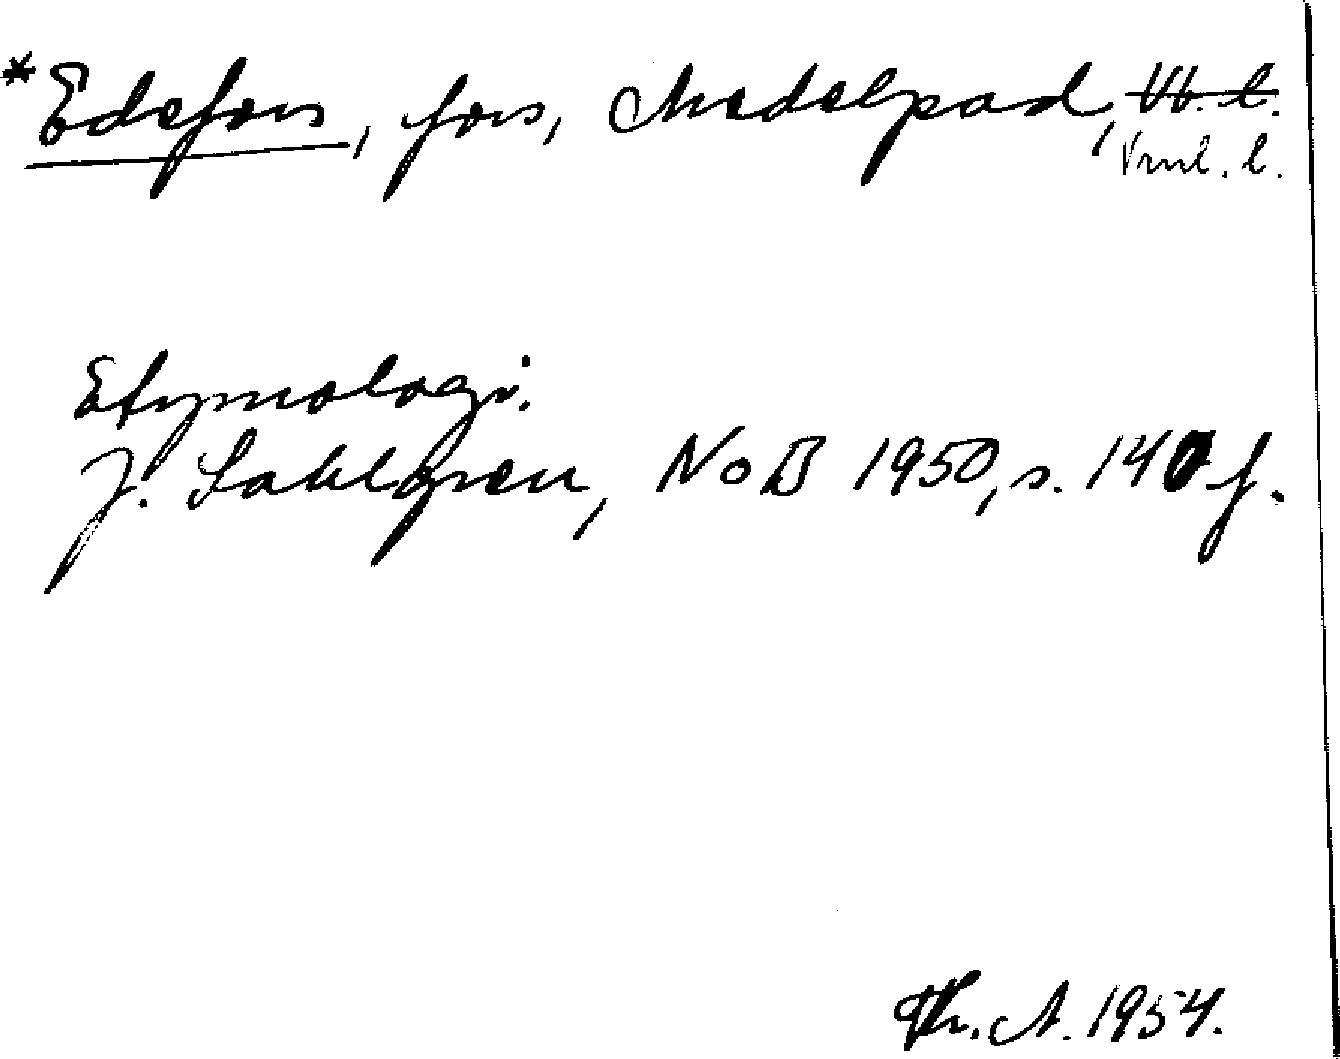 *Edefors, fors, Medelpad, Vb. l.
Vrnl. l.
Etymologi.
J. Sahlgren, NoB 1950, s. 140 f.
Th. A. 1954.